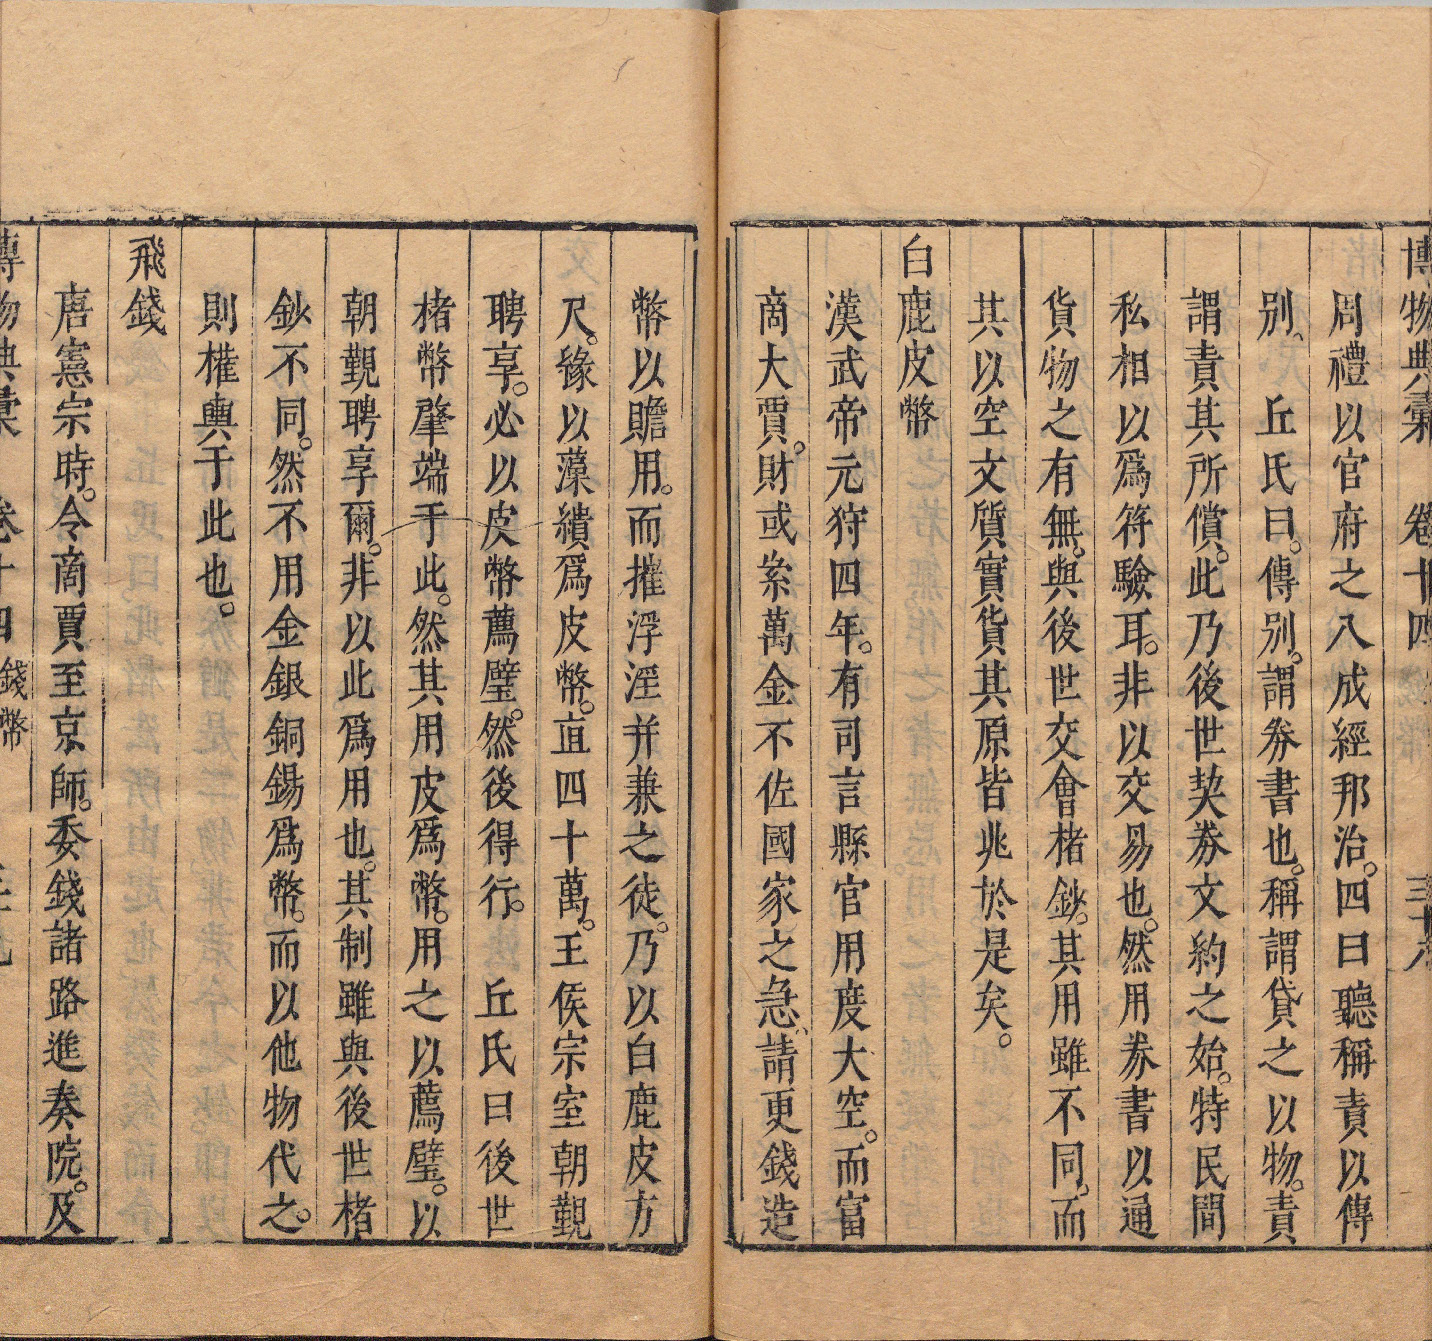 博物典彙 卷十四
周禮以官府之八成經邦治。四曰聽稱責以傅
別、 丘氏曰。傅別。謂券書也。稱謂貸之以物。責
謂責其所償。此乃後世契券文約之始。特民間
私相以爲符驗耳。非以交易也。然用券書以通
貨物之有無。與後世交會楮鈔。其用雖不同。而
其以空文質實貨其原皆兆於是矣。
白鹿皮幣
漢武帝元狩四年。有司言縣官用度大空。而富
商大賈。財或絫萬金不佐國家之急、請更錢造
幣以贍用。而摧浮淫并兼之徒。乃以白鹿皮方
尺。緣以藻繢爲皮幣。直四十萬。王侯宗室朝覲
聘享。必以皮幣薦璧。然後得行。 丘氏曰後世
楮幣肇端于此。然其用皮爲幣。用之以薦璧。以
朝覲聘享爾。非以此爲用也。其制雖與後世楮
鈔不同。然不用金銀銅錫爲幣。而以他物代之。
則權輿于此也。
飛錢
唐憲宗時。令商賈至京師。委錢諸路進奏院。及
博物典彙 卷十四 錢幣